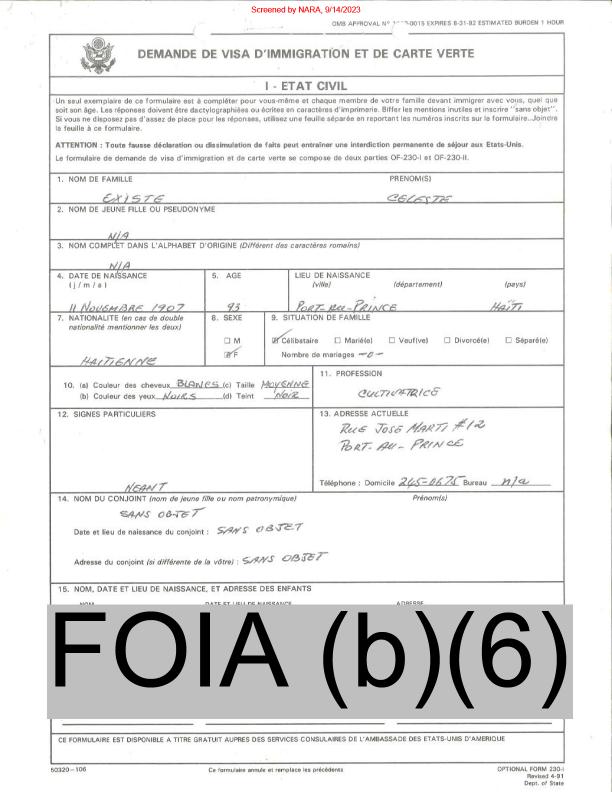 Screened by NARA, 9/14/2023
EXPIRES 8-31-92 ESTIMATED BURDEN 1 HOUR
DEMANDE DE VISA D'IMMIGRATION ET DE CARTE VERTE
I - ETAT CIVIL
Un seul exemplaire de ce formulaire est à compléter pour vous-même et chaque membre de votre famille devant immigrer avec vous, quel que
soit son âge. Les réponses doivent être dactylographiées ou écrites en caractères d'imprimerie. Biffer les mentions inutiles et inscrire "sans objet".
Si vous ne disposez pas d'assez de place pour les réponses, utilisez une feuille séparée en reportant les numéros inscrits sur la formulaire. Joindre
la feuille à ce formulaire.
ATTENTION : Toute fausse déclaration ou dissimulation de faits peut entraîner une interdiction permanente de séjour aux Etats-Unis.
Le formulaire de demande de visa d'immigration et de carte verte se compose de deux parties OF-230-I et OF-230-II.
1. NOM DE FAMILLE PRENOM(S)
EXISTE CELESTE
2. NOM DE JEUNE FILLE OU PSEUDONYME
N/A
3. NOM COMPLET DANS L'ALPHABET D'ORIGINE (Différent des caractères romains)
N/A
4. DATE DE NAISSANCE 5. AGE LIEU DE NAISSANCE
( j / m / a ) (ville) (département) (pays)
11 NOVEMBRE 1907 93 PORT-AU-PRINCE HAÏTI
7. NATIONALITE (en cas de double 8. SEXE 9. SITUATION DE FAMILLE
nationalité mentionner les deux)
M Célibataire Marié(e) Veuf(ve) Divorcé(e) Séparé(e)
HAITIENNE F Nombre de mariages -0-
10. (a) Couleur des cheveux BLANCS (c) Taille MOYENNE
(b) Couleur des yeux NOIRS (d) Teint NOIR
11. PROFESSION
CULTIVATRICE
12. SIGNES PARTICULIERS
NEANT
13. ADRESSE ACTUELLE
RUE JOSE MARTI #12
PORT-AU-PRINCE
Téléphone : Domicile 245-0675 Bureau n/a
14. NOM DU CONJOINT (nom de jeune fille ou nom patronymique) Prénom(s)
SANS OBJET
Date et lieu de naissance du conjoint : SANS OBJET
Adresse du conjoint (si différente de la vôtre) : SANS OBJET
15. NOM, DATE ET LIEU DE NAISSANCE, ET ADRESSE DES ENFANTS
NOM DATE ET LIEU DE NAISSANCE ADRESSE
FOIA (b)(6)
CE FORMULAIRE EST DISPONIBLE A TITRE GRATUIT AUPRES DES SERVICES CONSULAIRES DE L'AMBASSADE DES ETATS-UNIS D'AMERIQUE
50320-106 Ce formulaire annule et remplace les précédents OPTIONAL FORM 230-I
Revised 4-91
Dept. of State